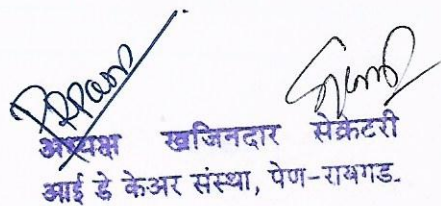 अध्यक्ष खजिनदार सेक्रेटरी
आई डे केअर संस्था, पेण-रायगड.